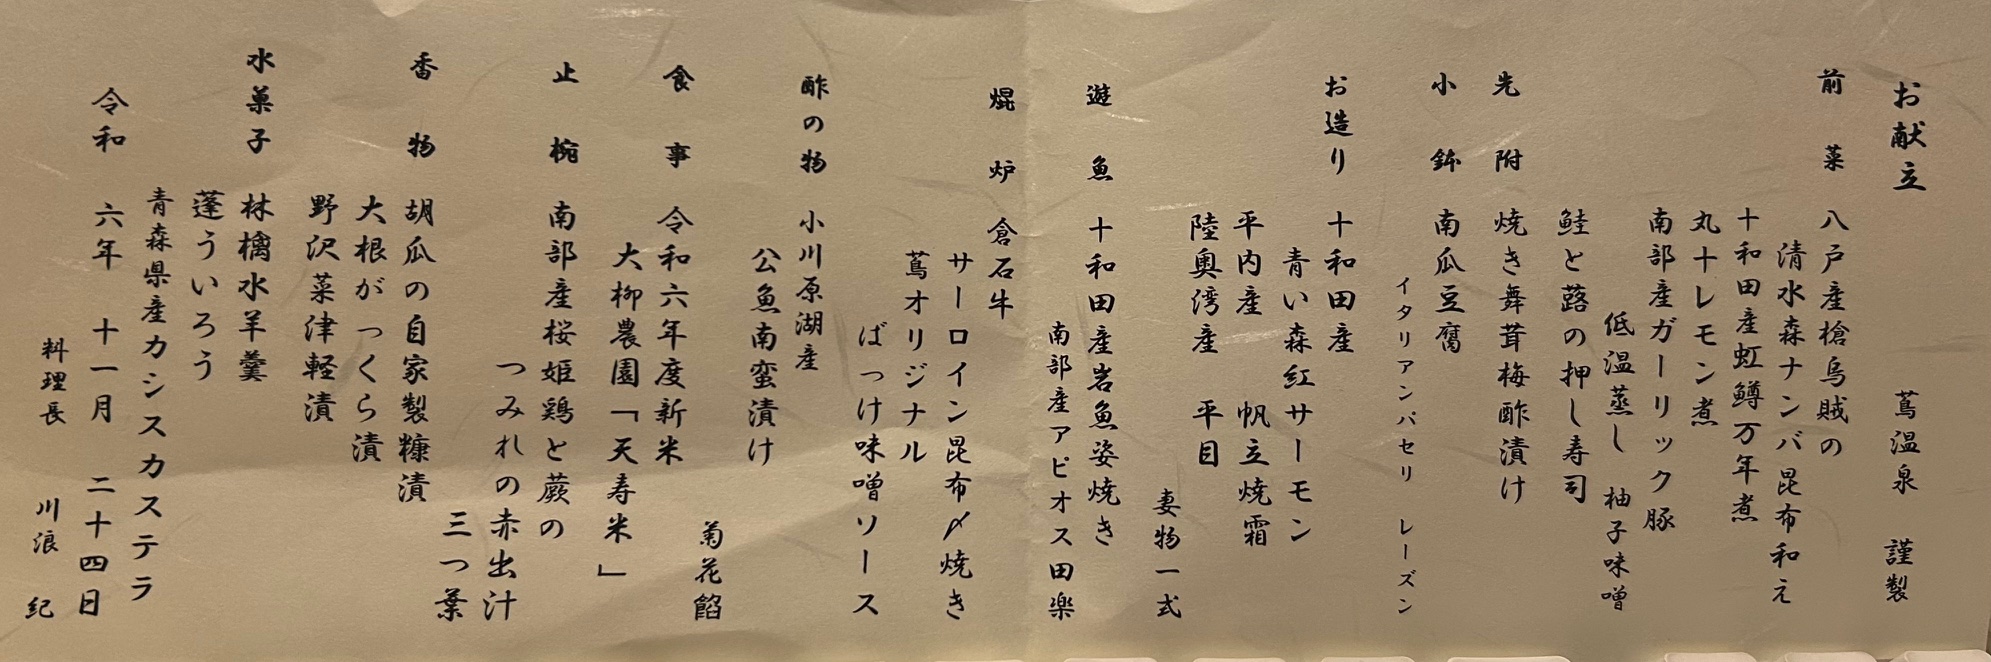 お献立 蔦温泉 謹製
前菜 八戸産槍烏賊の
清水森ナンバ昆布和え
十和田産虹鱒万年煮
丸十レモン煮
南部産ガーリック豚
低温蒸し 柚子味噌
鮭と蕗の押し寿司
先附 焼き舞茸梅酢漬け
小鉢 南瓜豆腐
イタリアンパセリ レーズン
お造り 十和田産
青い森紅サーモン
平内産 帆立焼霜
陸奥湾産 平目
妻物一式
遊魚 十和田産岩魚姿焼き
南部産アピオス田楽
焜炉 倉石牛
サーロイン昆布〆焼き
蔦オリジナル
ばっけ味噌ソース
酢の物 小川原湖産
公魚南蛮漬け
菊花餡
食事 令和六年度新米
大柳農園「天寿米」
止椀 南部産桜姫鶏と蕨の
つみれの赤出汁
三つ葉
香物 胡瓜の自家製糠漬
大根がっくら漬
野沢菜津軽漬
水菓子 林檎水羊羹
蓬ういろう
青森県産カシスカステラ
令和六年 十一月 二十四日
料理長 川浪 紀